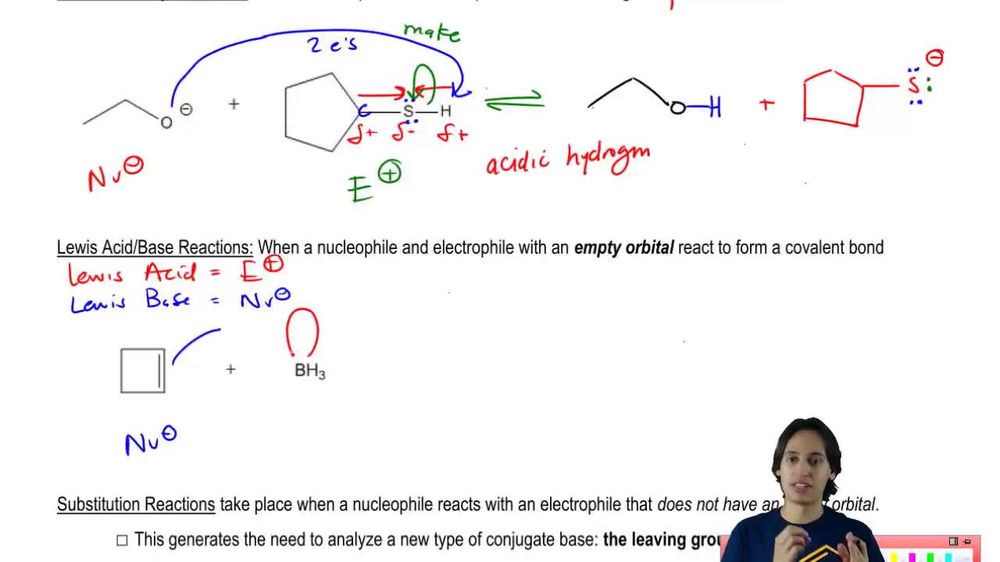 make
2 e's
⊖ + C S H ⇌ O H + S ⊖
O
δ+ δ- δ+
Nu⊖
E⊕
acidic hydrogen
Lewis Acid/Base Reactions: When a nucleophile and electrophile with an empty orbital react to form a covalent bond
Lewis Acid = E⊕
Lewis Base = Nu⊖
+ BH3
Nu⊖
Substitution Reactions take place when a nucleophile reacts with an electrophile that does not have an orbital.
□ This generates the need to analyze a new type of conjugate base: the leaving